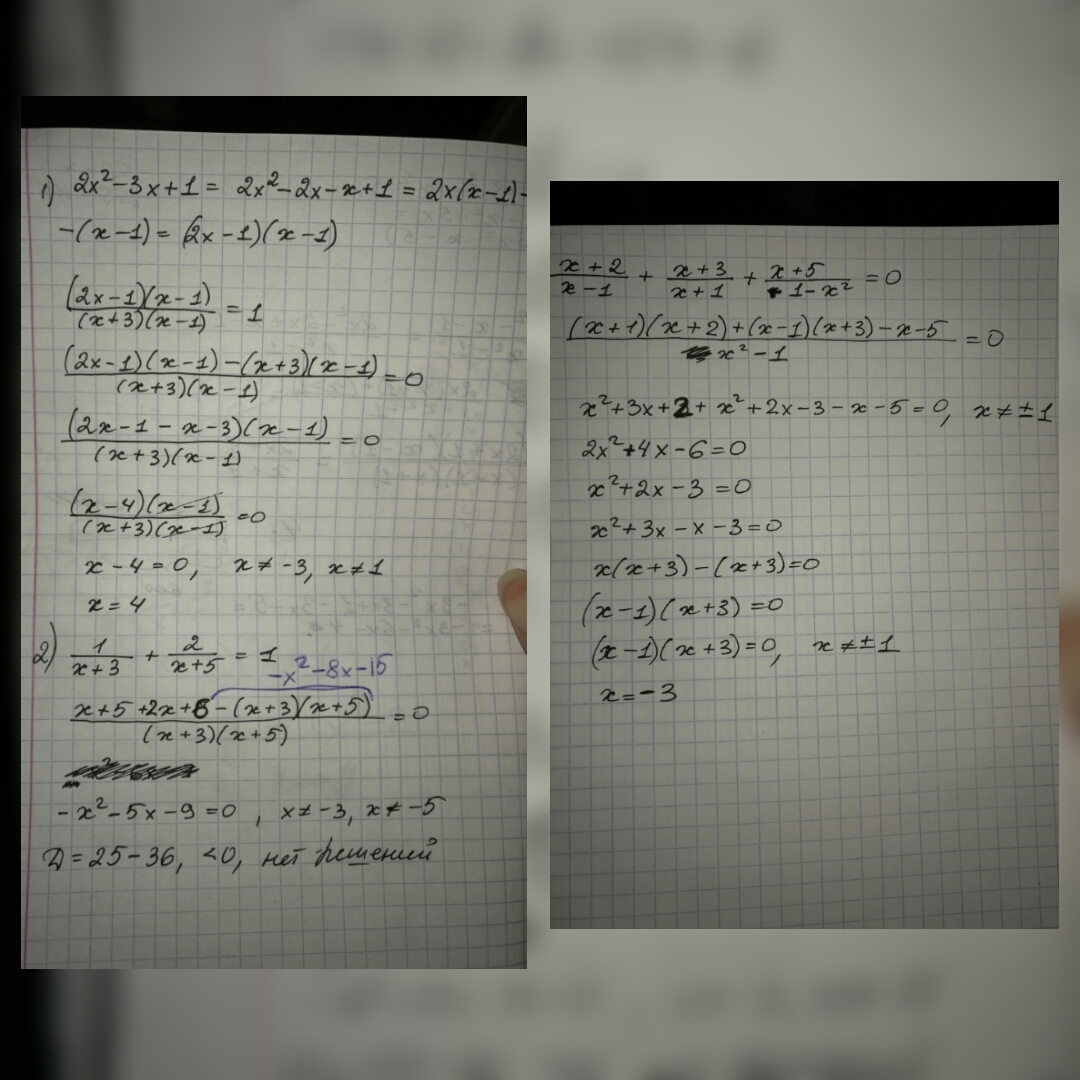 1) 2x² - 3x + 1 = 2x² - 2x - x + 1 = 2x(x - 1) -
- (x - 1) = (2x - 1)(x - 1)
(2x - 1)(x - 1) / (x + 3)(x - 1) = 1
(2x - 1)(x - 1) - (x + 3)(x - 1) / (x + 3)(x - 1) = 0
(2x - 1 - x - 3)(x - 1) / (x + 3)(x - 1) = 0
(x - 4)(x - 1) / (x + 3)(x - 1) = 0
x - 4 = 0, x ≠ -3, x ≠ 1
x = 4
2) 1 / x + 3 + 2 / x + 5 = 1
-x² - 8x - 15
x + 5 + 2x + 6 - (x + 3)(x + 5) / (x + 3)(x + 5) = 0
- x² - 5x - 9 = 0, x ≠ -3, x ≠ -5
D = 25 - 36, < 0, нет решений
x + 2 / x - 1 + x + 3 / x + 1 + x + 5 / 1 - x² = 0
(x + 1)(x + 2) + (x - 1)(x + 3) - x - 5 / x² - 1 = 0
x² + 3x + 2 + x² + 2x - 3 - x - 5 = 0, x ≠ ± 1
2x² + 4x - 6 = 0
x² + 2x - 3 = 0
x² + 3x - x - 3 = 0
x(x + 3) - (x + 3) = 0
(x - 1)(x + 3) = 0
(x - 1)(x + 3) = 0, x ≠ ± 1
x = -3